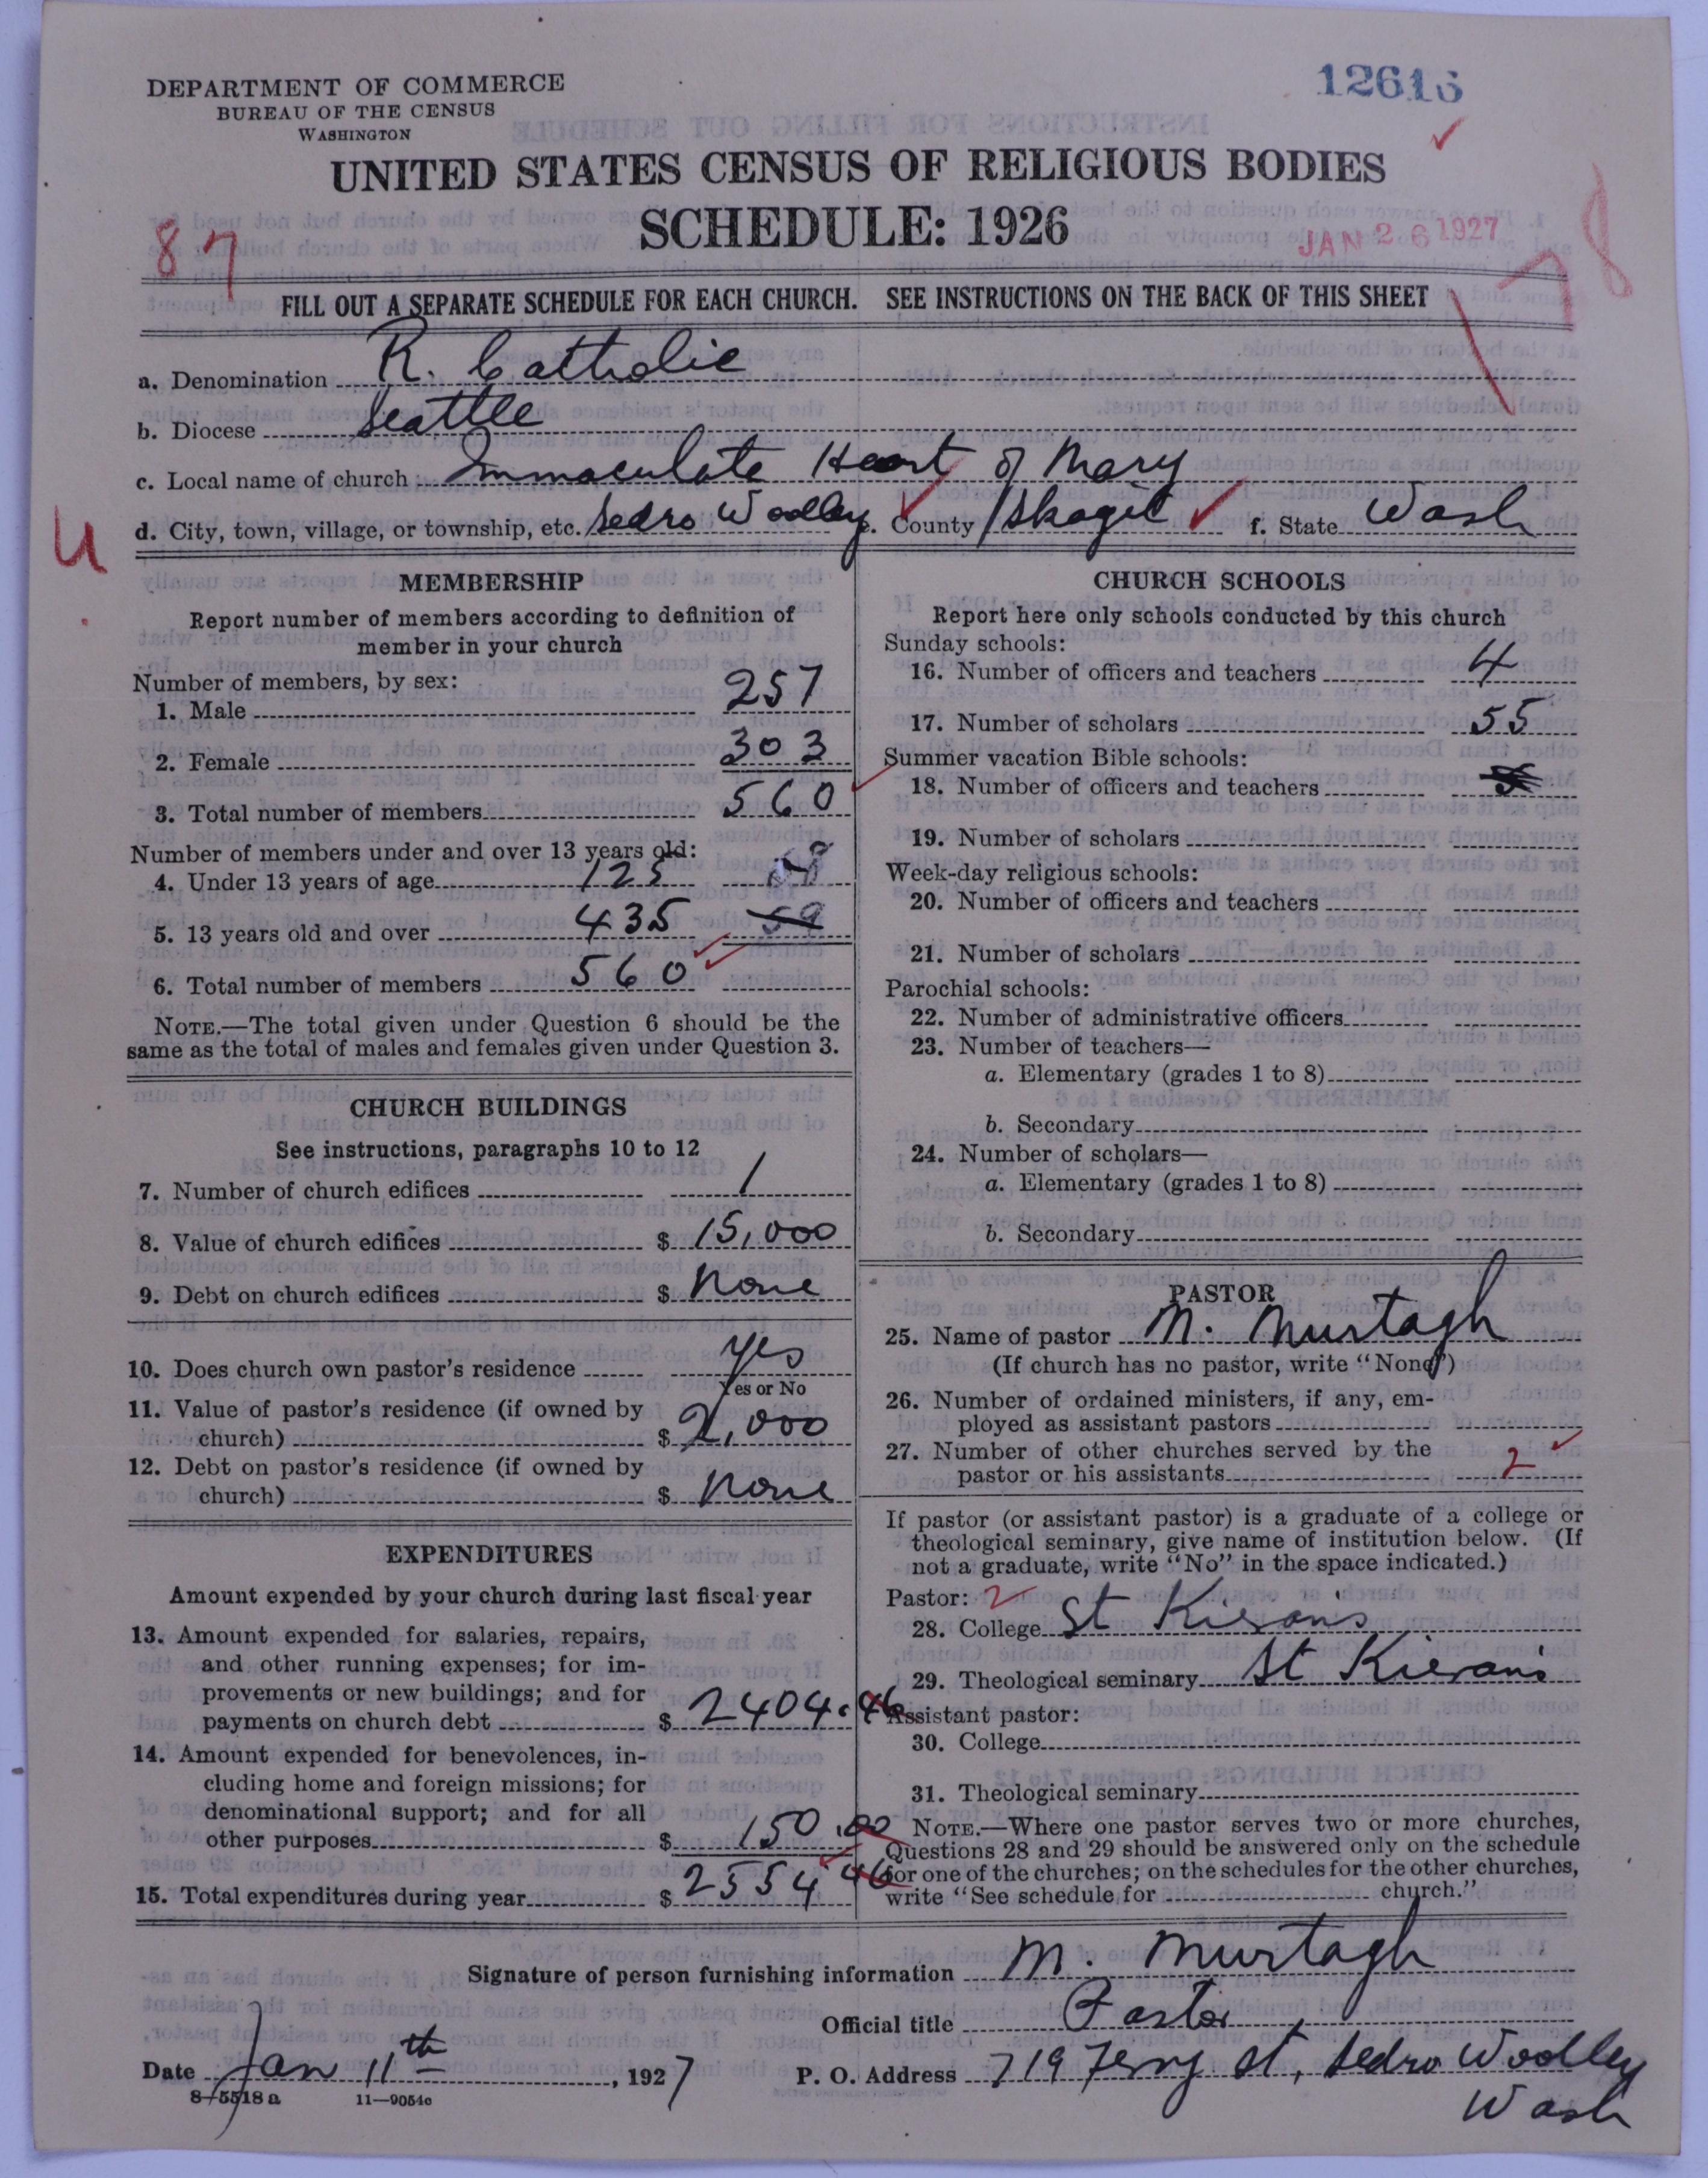 DEPARTMENT OF COMMERCE
BUREAU OF THE CENSUS
WASHINGTON
12616
UNITED STATES CENSUS OF RELIGIOUS BODIES
SCHEDULE: 1926
87
JAN 26 1927
78
FILL OUT A SEPARATE SCHEDULE FOR EACH CHURCH. SEE INSTRUCTIONS ON THE BACK OF THIS SHEET
a. Denomination R. Catholic
b. Diocese Seattle
c. Local name of church Immaculate Heart of Mary
d. City, town, village, or township, etc. Sedro Woolley e. County Skagit f. State Wash
U
MEMBERSHIP
Report number of members according to definition of
member in your church
Number of members, by sex:
1. Male 257
2. Female 303
3. Total number of members 560
Number of members under and over 13 years old:
4. Under 13 years of age 125
5. 13 years old and over 435 59
6. Total number of members 560
NOTE.—The total given under Question 6 should be the
same as the total of males and females given under Question 3.
CHURCH BUILDINGS
See instructions, paragraphs 10 to 12
7. Number of church edifices 1
8. Value of church edifices $ 15,000
9. Debt on church edifices $ None
10. Does church own pastor's residence Yes
Yes or No
11. Value of pastor's residence (if owned by
church) $ 2,000
12. Debt on pastor's residence (if owned by
church) $ None
EXPENDITURES
Amount expended by your church during last fiscal year
13. Amount expended for salaries, repairs,
and other running expenses; for im-
provements or new buildings; and for
payments on church debt $ 2404.46
14. Amount expended for benevolences, in-
cluding home and foreign missions; for
denominational support; and for all
other purposes $ 150.00
15. Total expenditures during year $ 2554 46
CHURCH SCHOOLS
Report here only schools conducted by this church
Sunday schools:
16. Number of officers and teachers 4
17. Number of scholars 55
Summer vacation Bible schools:
18. Number of officers and teachers
19. Number of scholars
Week-day religious schools:
20. Number of officers and teachers
21. Number of scholars
Parochial schools:
22. Number of administrative officers
23. Number of teachers—
a. Elementary (grades 1 to 8)
b. Secondary
24. Number of scholars—
a. Elementary (grades 1 to 8)
b. Secondary
PASTOR
25. Name of pastor M. Murtagh
(If church has no pastor, write "None")
26. Number of ordained ministers, if any, em-
ployed as assistant pastors
27. Number of other churches served by the
pastor or his assistants 2
If pastor (or assistant pastor) is a graduate of a college or
theological seminary, give name of institution below. (If
not a graduate, write "No" in the space indicated.)
Pastor: 2
28. College St Kieran's
29. Theological seminary St Kieran's
Assistant pastor:
30. College
31. Theological seminary
NOTE.—Where one pastor serves two or more churches,
Questions 28 and 29 should be answered only on the schedule
for one of the churches; on the schedules for the other churches,
write "See schedule for church."
Signature of person furnishing information M. Murtagh
Official title Pastor
Date Jan 11th, 1927 P. O. Address 719 Ferry St, Sedro Woolley
Wash
8-5518 a 11-9054c